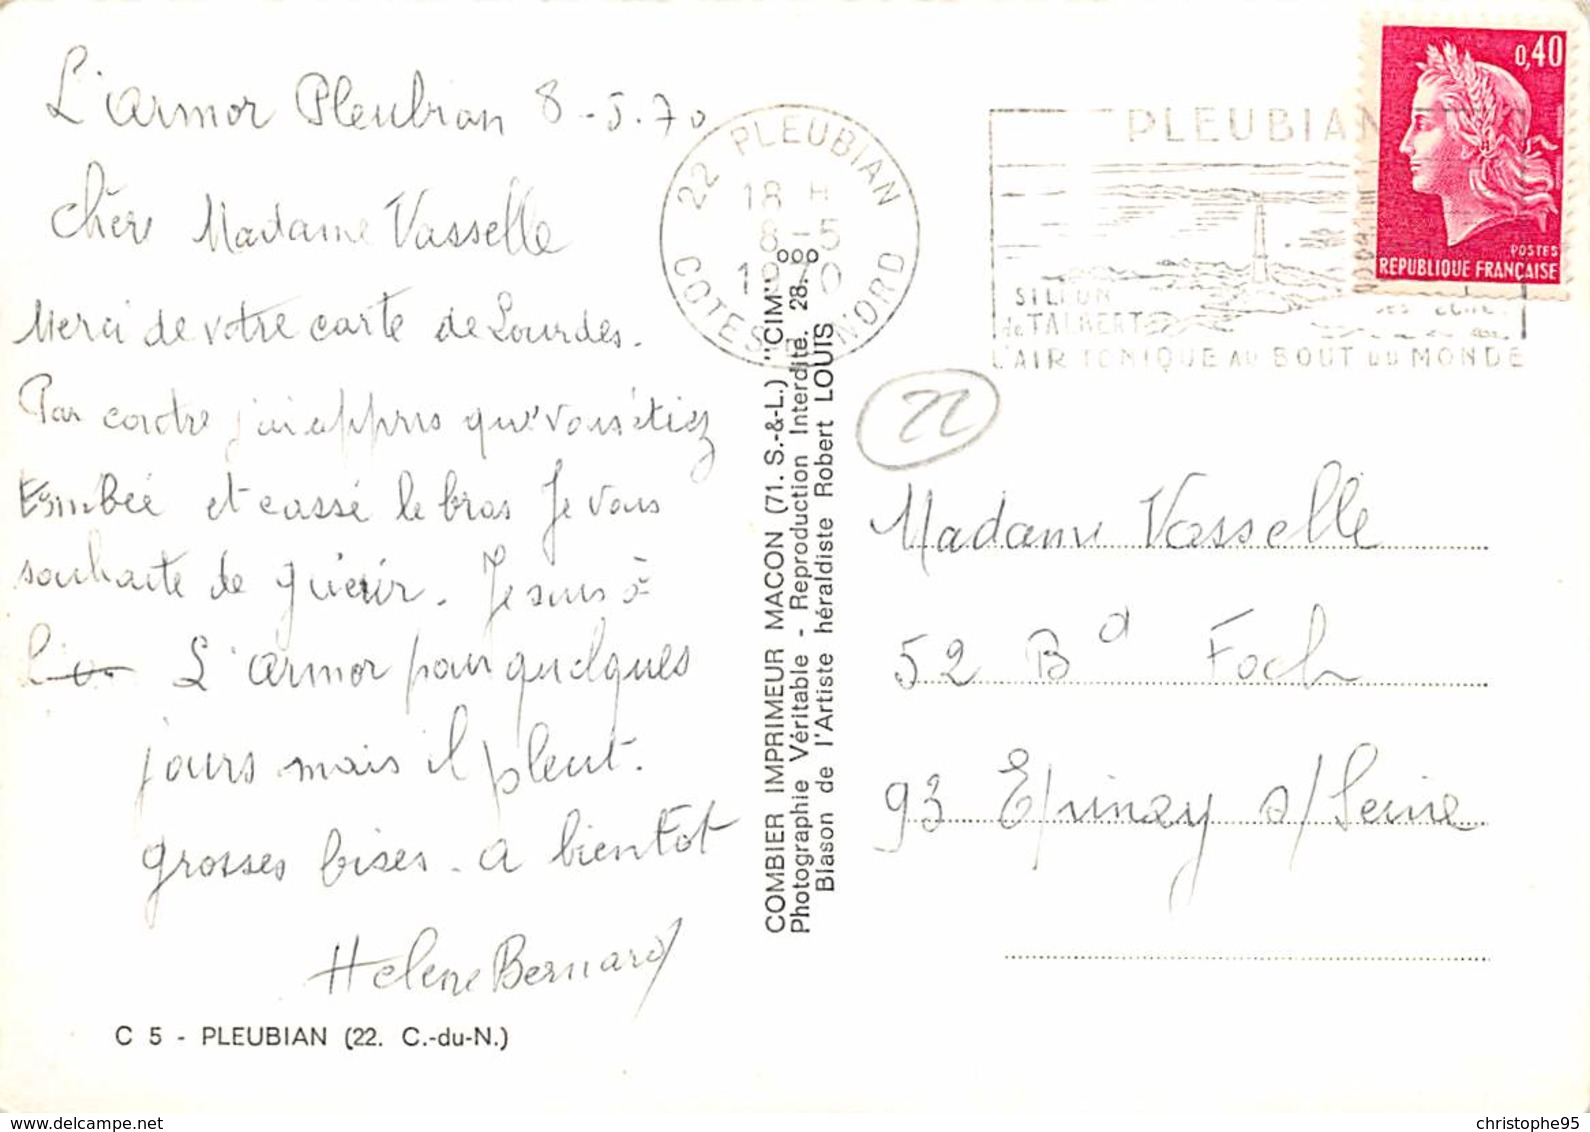 L'armor Pleubian 8-5.70
chère Madame Vasselle
Merci de votre carte de Lourdes.
Par contre j'ai appris que vous étiez
tombée et cassé le bras Je vous
souhaite de guérir. Je suis à
L'armor pour quelques
jours mais il pleut.
grosses bises. a bientot
Helene Bernard
C 5 - PLEUBIAN (22. C.-du-N.)
COMBIER IMPRIMEUR MACON (71. S.-&-L.) "CIM"
Photographie Véritable - Reproduction Interdite. 28.
Blason de l'Artiste héraldiste Robert LOUIS
22 PLEUBIAN
18 H
8-5
1970
COTES DU NORD
PLEUBIAN
SILLON
de TALBERT
L'AIR TONIQUE AU BOUT DU MONDE
0,40
POSTES
REPUBLIQUE FRANÇAISE
22
Madame Vasselle
52 Bd Foch
93 Epinay s/Seine
christophe95